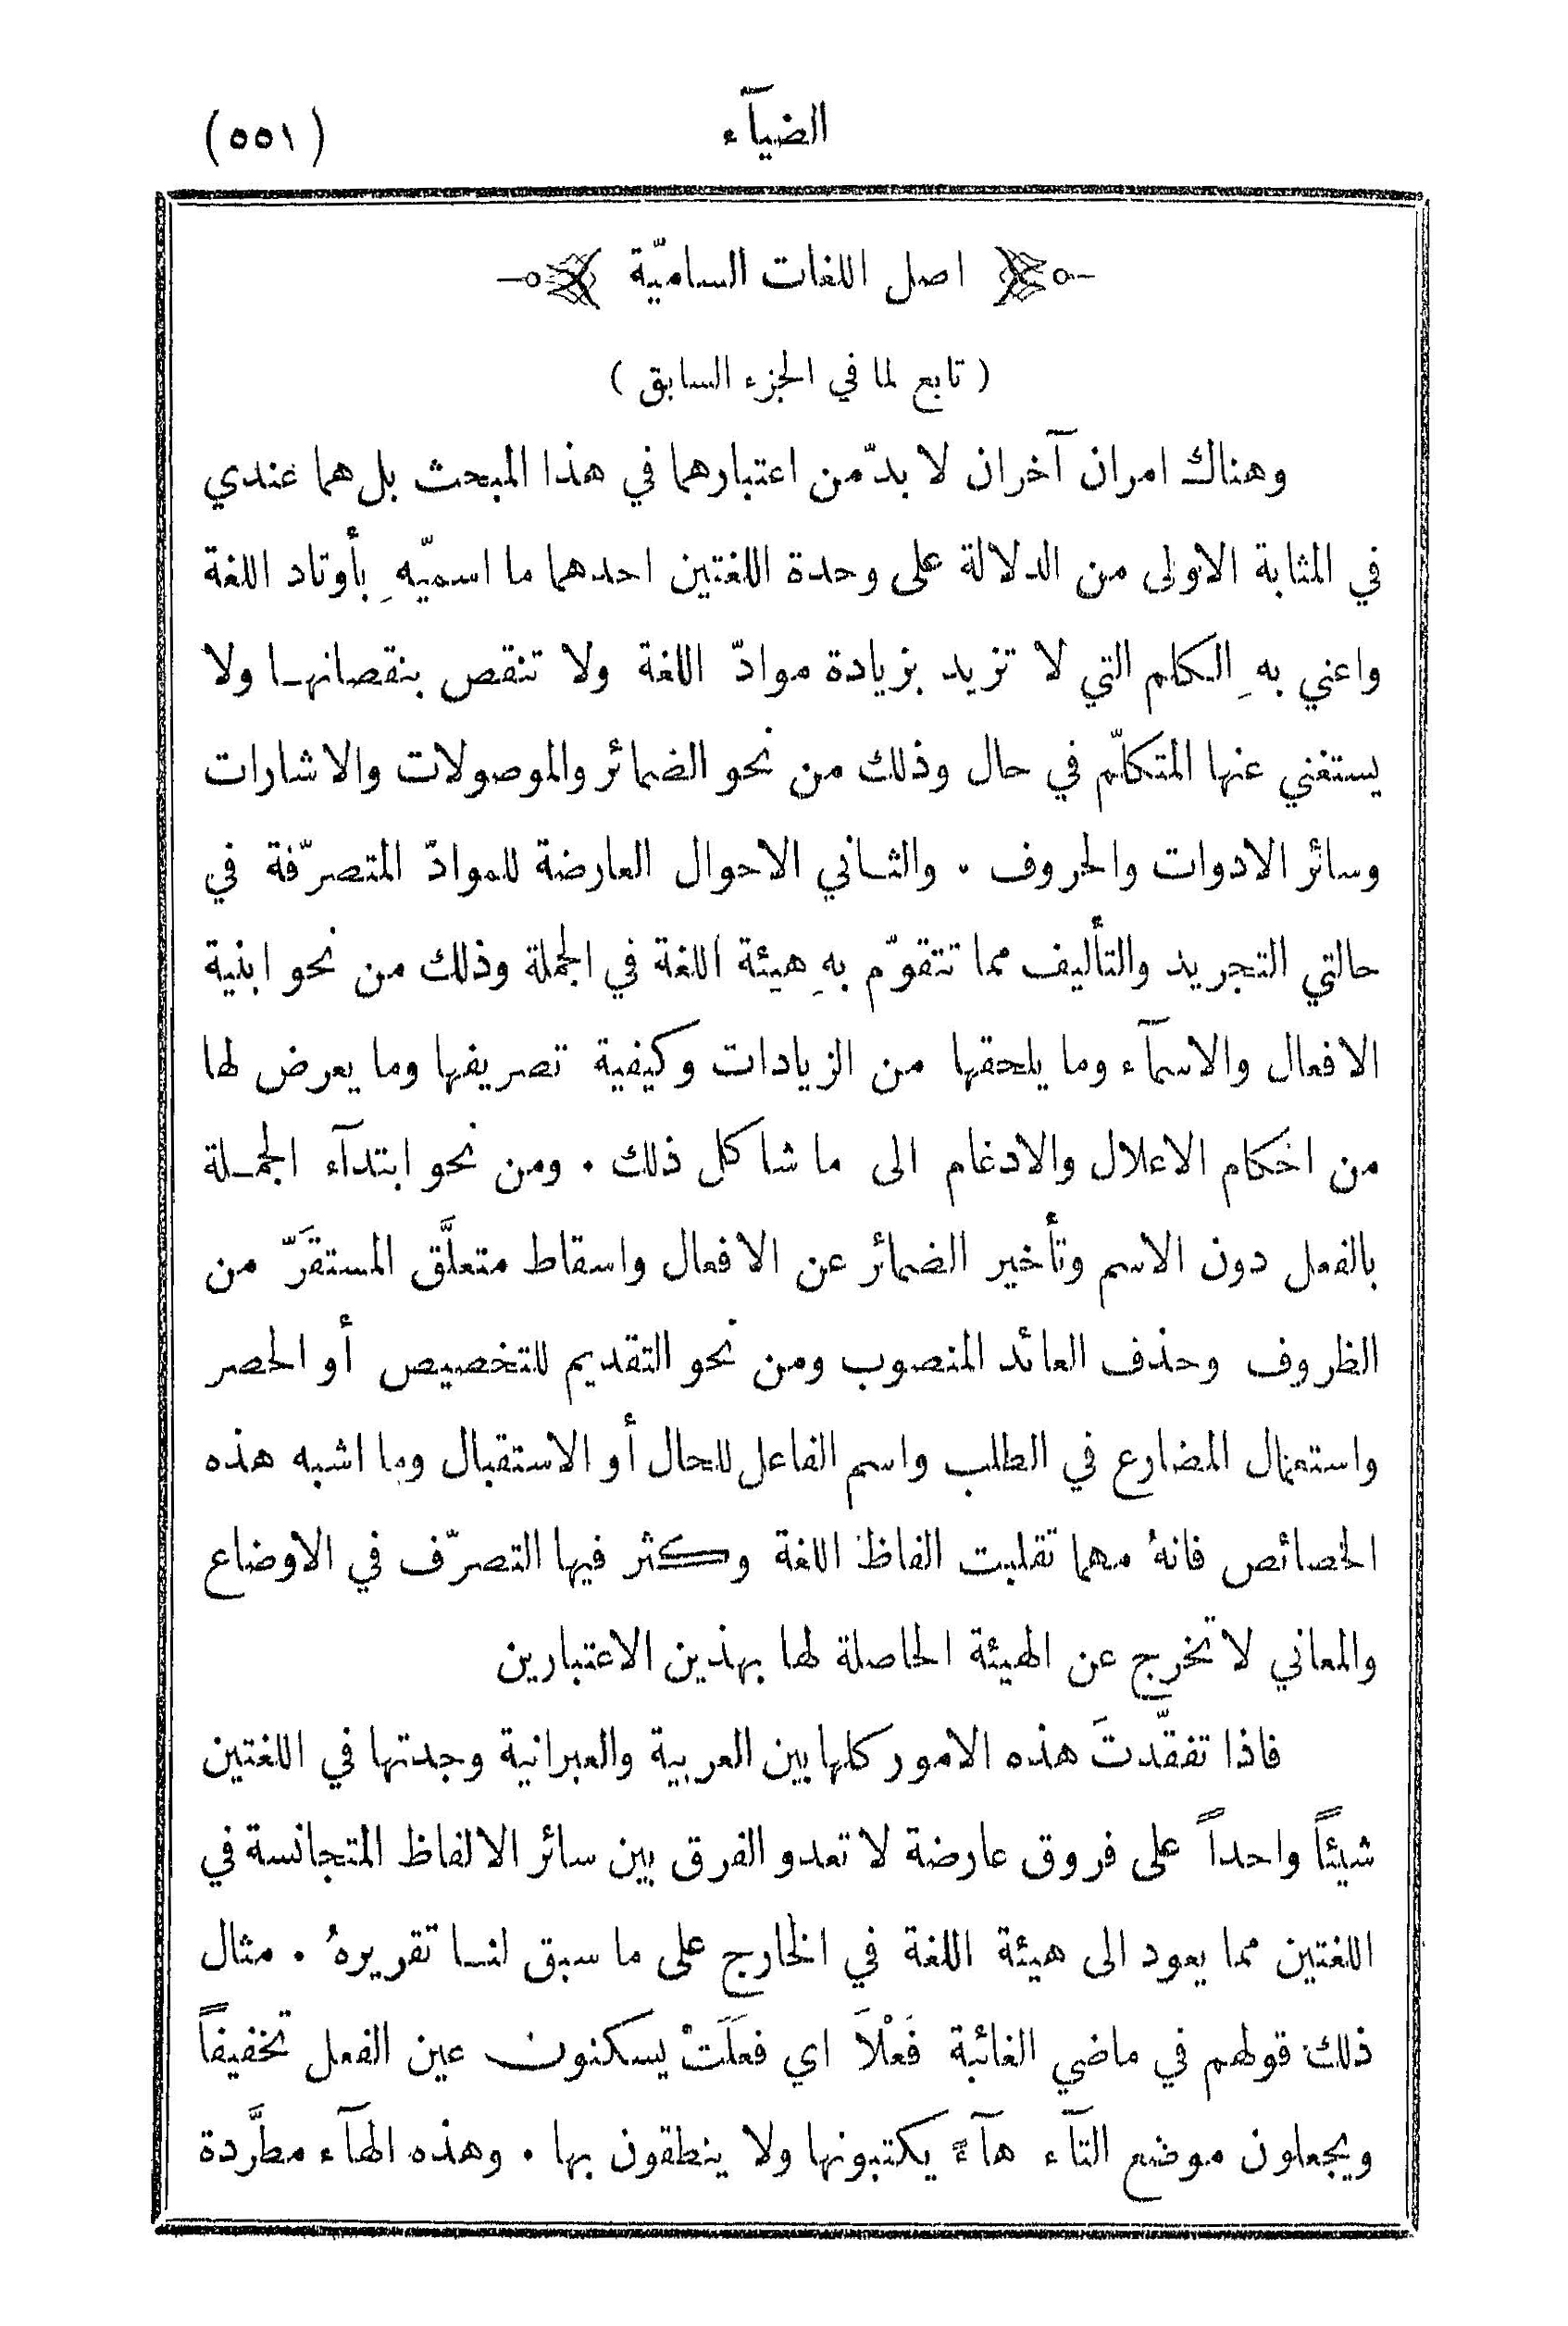 الضيآء
(٥٥١)
اصل اللغات الساميّة
( تابع لما في الجزء السابق )
وهناك امران آخران لا بدّ من اعتبارهما في هذا المبحث بل هما عندي
في المثابة الاولى من الدلالة على وحدة اللغتين احدهما ما اسميّهِ بأوتاد اللغة
واعني بهِ الكلم التي لا تزيد بزيادة موادّ اللغة ولا تنقص بنقصانها ولا
يستغني عنها المتكلّم في حال وذلك من نحو الضمائر والموصولات والاشارات
وسائر الادوات والحروف . والثاني الاحوال العارضة للموادّ المتصرّفة في
حالتي التجريد والتأليف مما تتقوّم بهِ هيئة اللغة في الجملة وذلك من نحو ابنية
الافعال والاسمآء وما يلحقها من الزيادات وكيفية تصريفها وما يعرض لها
من احكام الاعلال والادغام الى ما شاكل ذلك . ومن نحو ابتدآء الجملة
بالفعل دون الاسم وتأخير الضمائر عن الافعال واسقاط متعلَّق المستقَرّ من
الظروف وحذف العائد المنصوب ومن نحو التقديم للتخصيص أو الحصر
واستعمال المضارع في الطلب واسم الفاعل للحال أو الاستقبال وما اشبه هذه
الخصائص فانهُ مهما تقلبت الفاظ اللغة وكثر فيها التصرّف في الاوضاع
والمعاني لا تخرج عن الهيئة الحاصلة لها بهذين الاعتبارين
فاذا تفقَّدتَ هذه الامور كلها بين العربية والعبرانية وجدتها في اللغتين
شيئاً واحداً على فروق عارضة لا تعدو الفرق بين سائر الالفاظ المتجانسة في
اللغتين مما يعود الى هيئة اللغة في الخارج على ما سبق لنا تقريرهُ . مثال
ذلك قولهم في ماضي الغائبة فَعْلاَ اي فعلَتْ يسكنون عين الفعل تخفيفاً
ويجعلون موضع التآء هآءً يكتبونها ولا ينطقون بها . وهذه الهآء مطَّردة